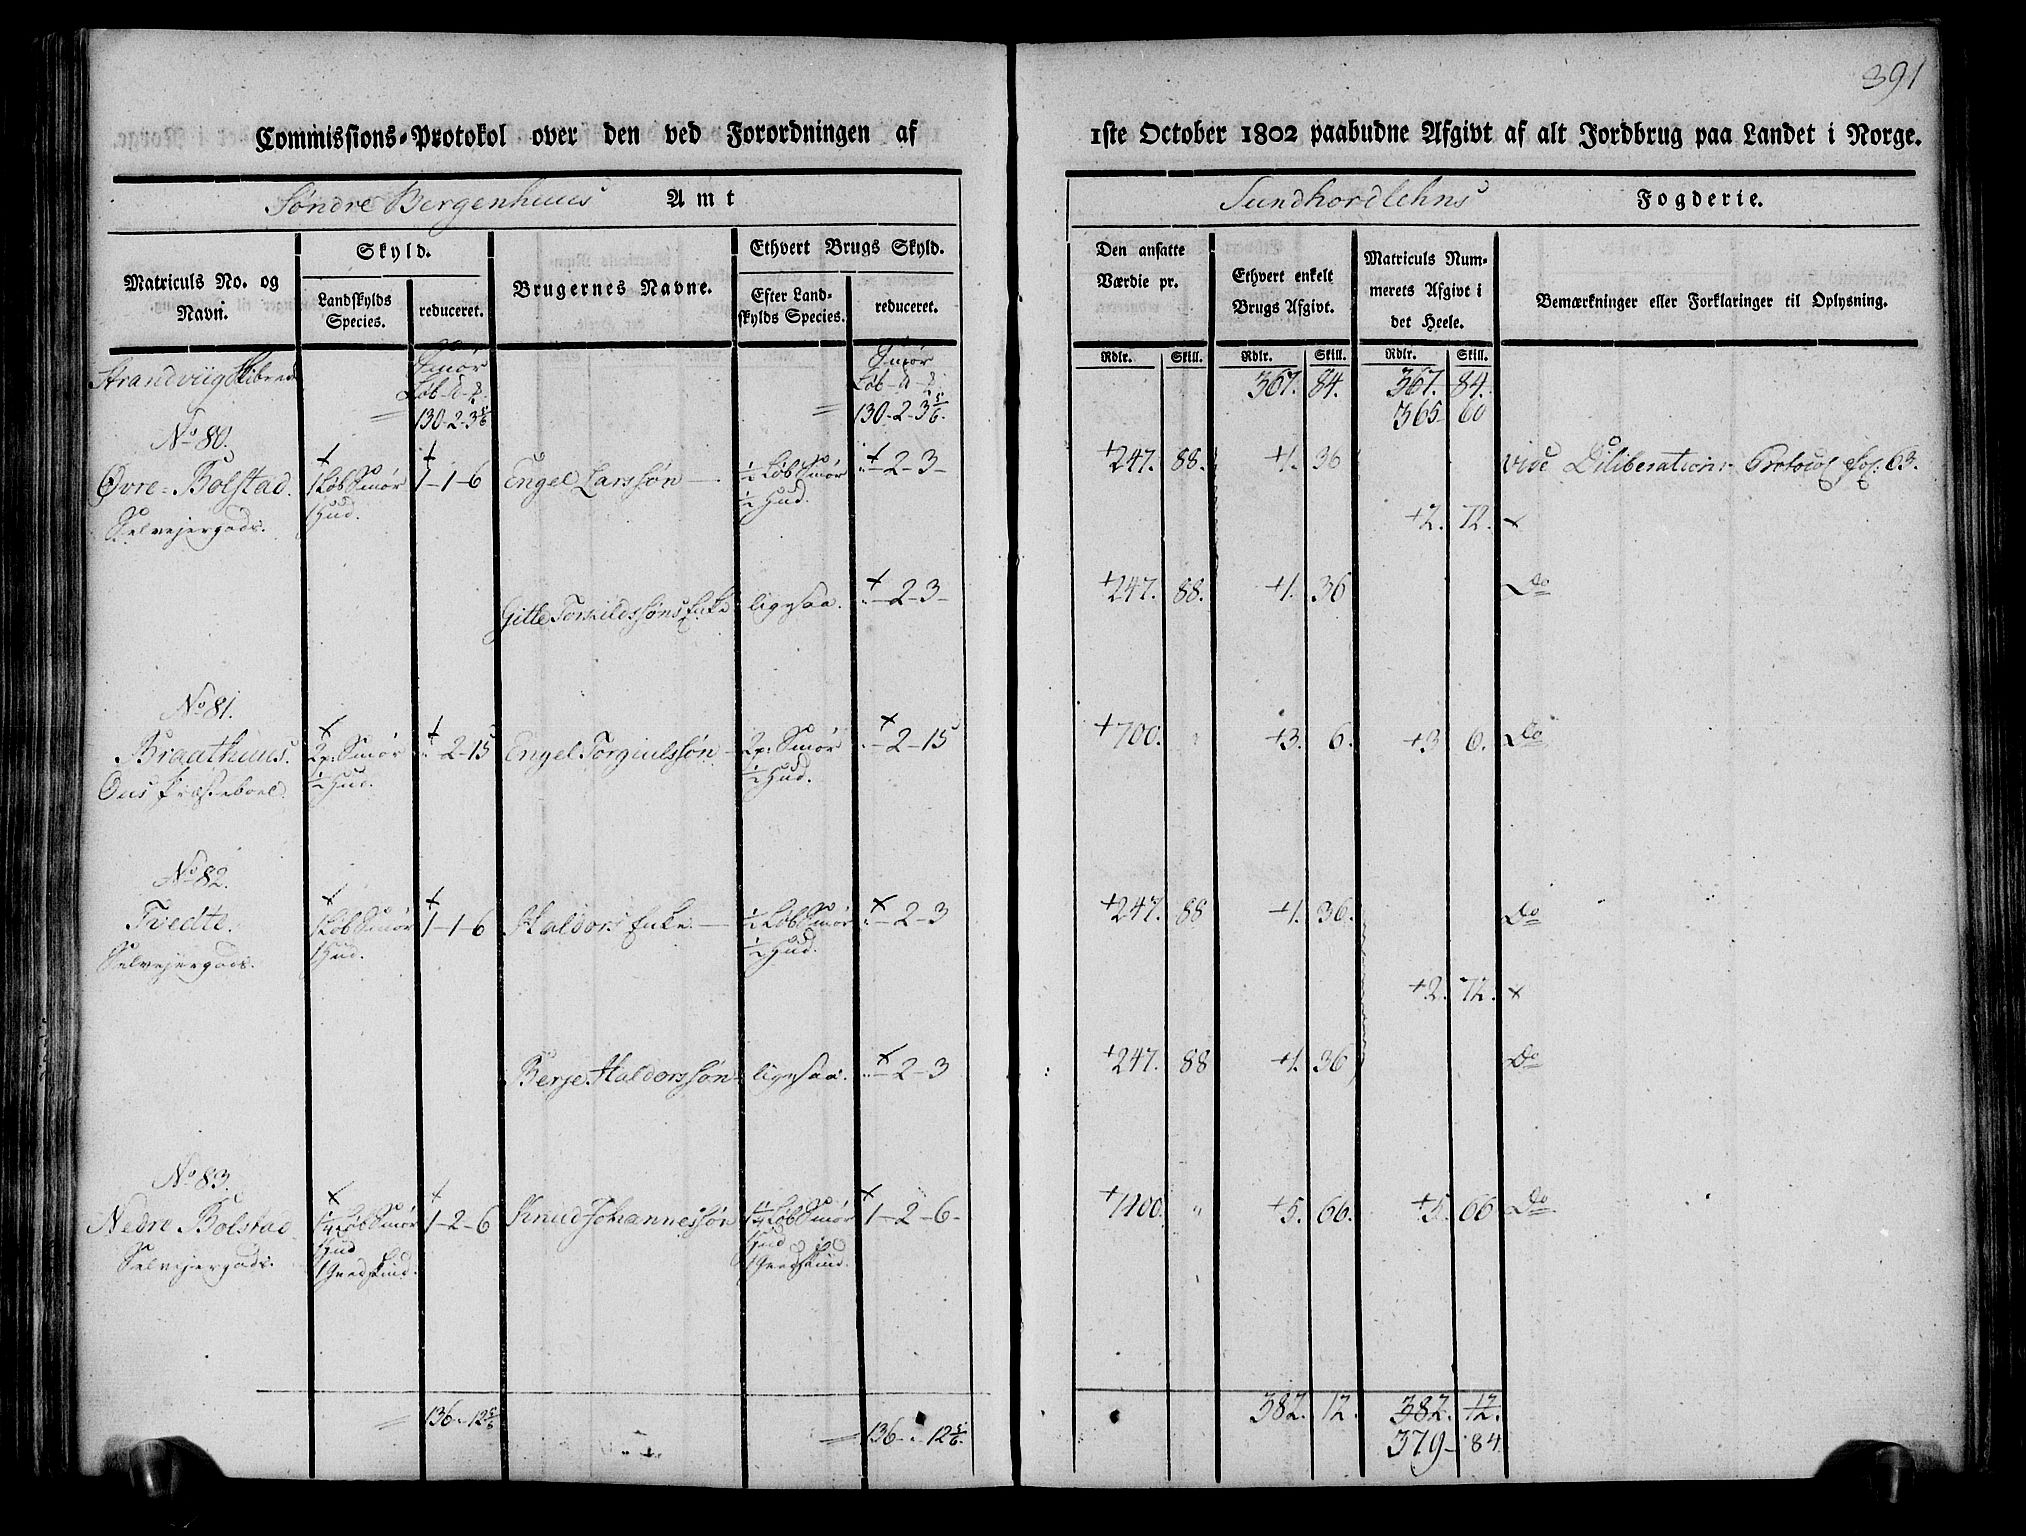 391
Commissions-Protokol over den ved Forordningen af 1ste October 1802 paabudne Afgivt af alt Jordbrug paa Landet i Norge.
Søndre Bergenhuus Amt Sundhordlehns Fogderie.
Matriculs No. og Navn. Skyld. Landskylds Species. reduceret. Brugernes Navne. Ethvert Brugs Skyld. Efter Landskylds Species. reduceret. Den ansatte Værdie pr. Ethvert enkelt Brugs Afgivt. Matriculs Nummerets Afgivt i det Heele. Bemærkninger eller Forklaringer til Oplysning.
Rdlr. Skill. Rdlr. Skill. Rdlr. Skill.
Strandviig Skibrede Smør Smør 367. 84. 367. 84.
130-2-3 5/6 130-2-3 5/6. 365 60
No 80.
Øvre Bolstad. 1 Løb Smør 1-1-6 Engel Larssøn 1/2 Løb Smør "-2-3- +247. 88. +1. 36 vide Deliberations Protocol Fol. 63.
Selvejergods. 1 Hud. 1/2 Hud. +2. 72. x
Gitle Torkildssøns Enke ligesaa. "-2-3- +247. 88. +1. 36 Do
No 81.
Braathuus. 2 p. Smør "-2-15 Engel Torgiulssøn 2 p. Smør "-2-15 +700. " +3. 6. +3 6. Do
Ous Præsteboel. 1/2 Hud. 1/2 Hud.
No 82.
Tvedte. 1 Løb Smør 1-1-6 Haldors Enke. 1/2 Løb Smør "-2-3 +247. 88 +1. 36. Do
Selvejergods. 1 Hud. 1/2 Hud. +2. 72. x
Berje Haldorssøn ligesaa. "-2-3 +247. 88 +1. 36 Do
No 83.
Nedre Bolstad 1 1/4 Løb Smør 1-2-6 Knud Johannessøn 1 1/4 Løb Smør 1-2-6- +1400. " +5. 66. +5. 66 Do
Selvejergods. 1 Hud 1 Hud
1 Giedskind. 1 Giedskind.
136-"-12 5/6 136-"-12 5/6. 382. 12. 382. 12.
379- 84.